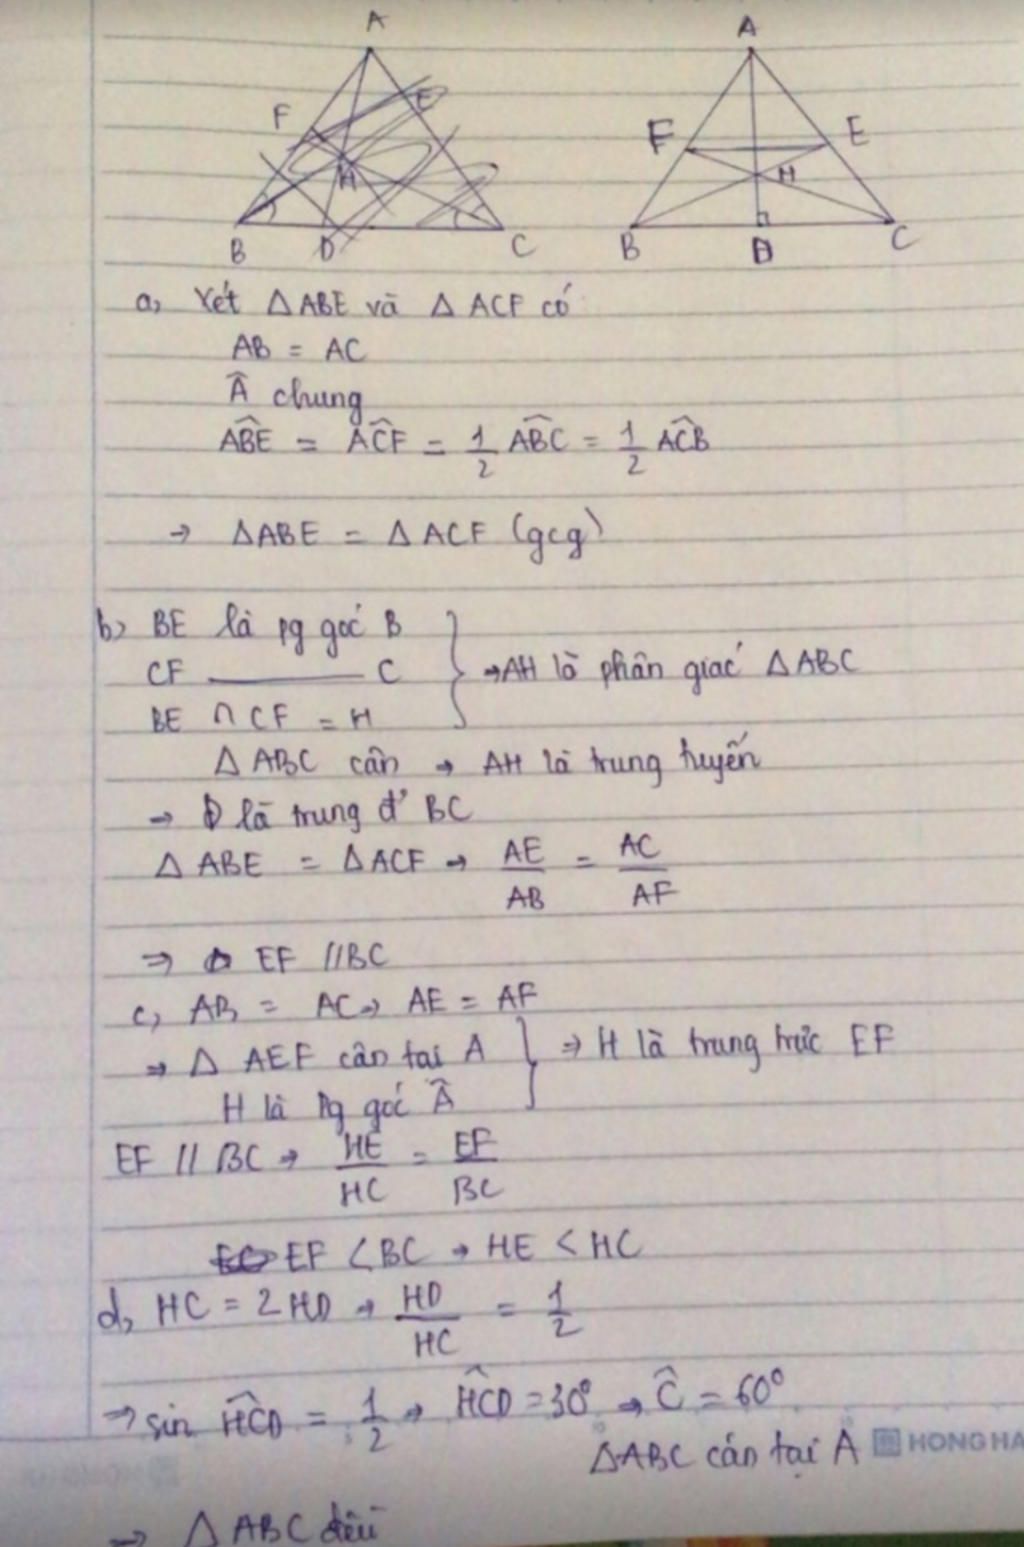 A
A
F
E
F
E
H
H
B
D
C
B
D
C
a, Xét △ABE và △ACF có
AB = AC
Â chung
ABE^ = ACF^ = 1/2 ABC^ = 1/2 ACB^
→ △ABE = △ACF (gcg)
b, BE là pg góc B
CF ——— C } → AH là phân giác △ABC
BE ∩ CF = H
△ABC cân → AH là trung tuyến
→ D là trung đ' BC
△ABE = △ACF → AE/AB = AC/AF
⇒ EF // BC
c, AB = AC → AE = AF
⇒ △AEF cân tại A } ⇒ H là trung trực EF
H là pg góc Â
EF // BC → HE/HC = EF/BC
EF < BC → HE < HC
d, HC = 2HD → HD/HC = 1/2
⇒ sin HCD^ = 1/2 → HCD^ = 30° → Ĉ = 60°
△ABC cân tại A
HONG HA
⇒ △ABC đều